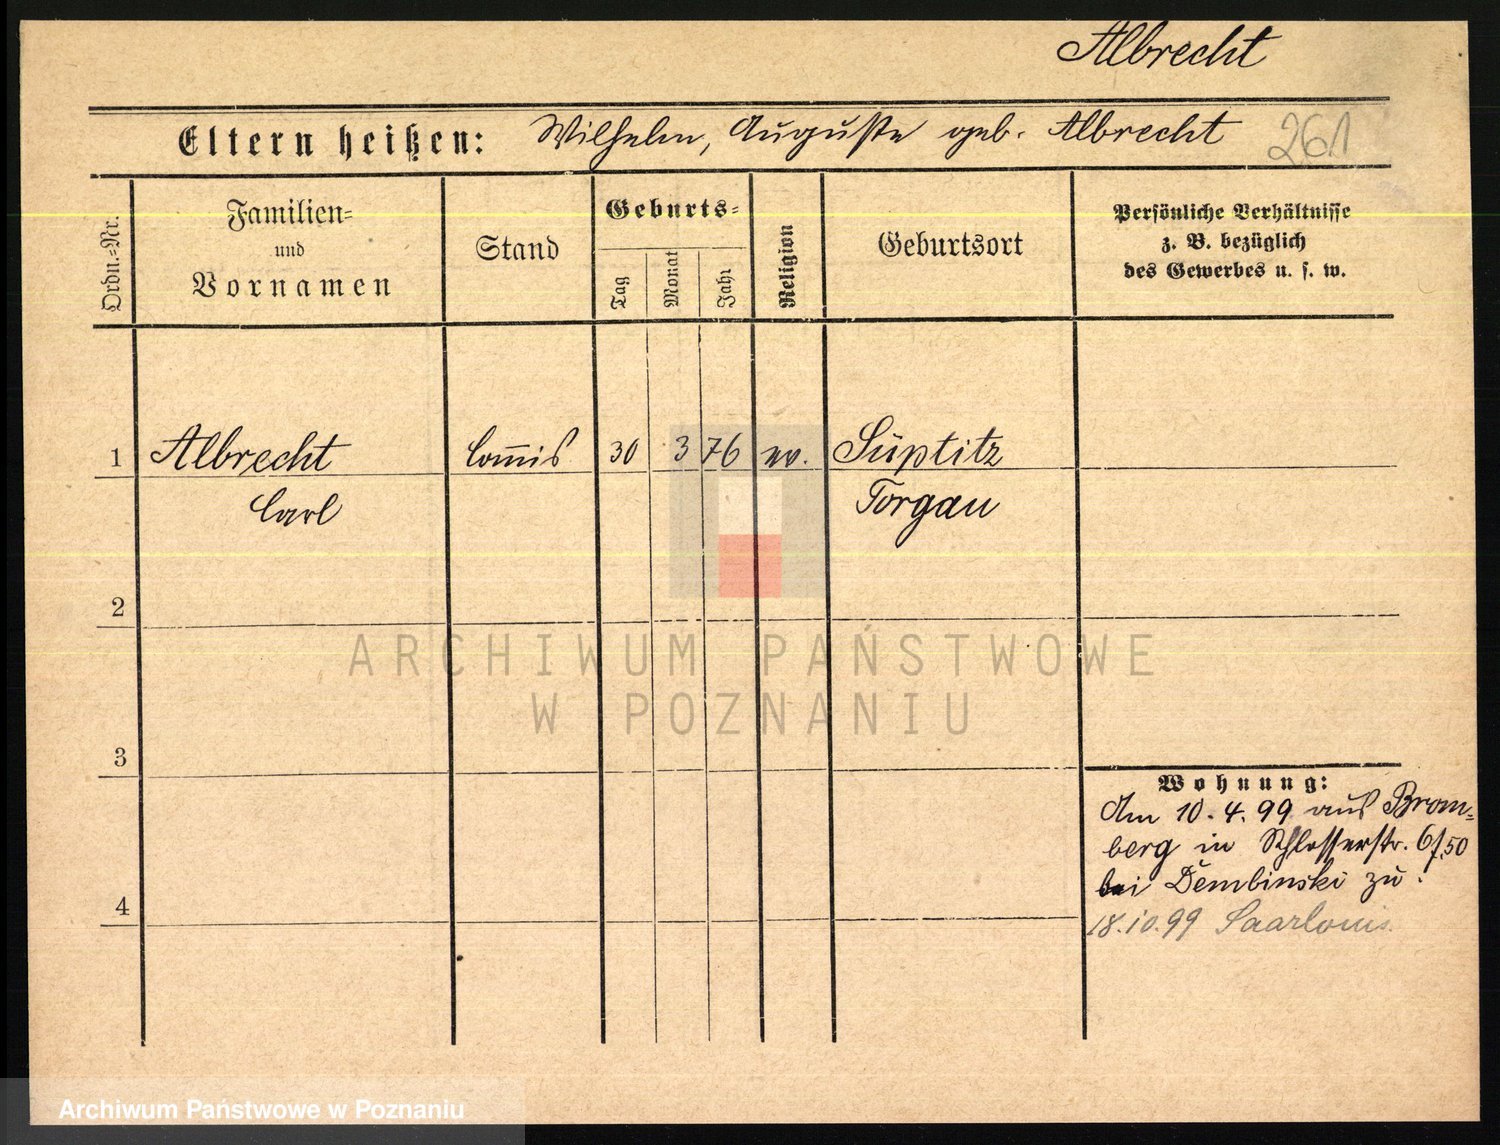 Albrecht
Eltern heißen: Wilhelm, Auguste geb. Albrecht 261
Ordn.-Nr.
Familien-
und
Vornamen
Stand
Geburts-
Tag
Monat
Jahr
Religion
Geburtsort
Persönliche Verhältnisse
z. B. bezüglich
des Gewerbes u. s. w.
1 Albrecht Com̅is 30 3 76 ev. Süptitz
Carl Torgau
2
3
4
Wohnung:
Am 10. 4. 99 aus Brom-
berg in Schlosserstr. 6 f. 50
bei Dembinski zu.
18.10.99 Saarlouis.
ARCHIWUM PAŃSTWOWE
W POZNANIU
Archiwum Państwowe w Poznaniu